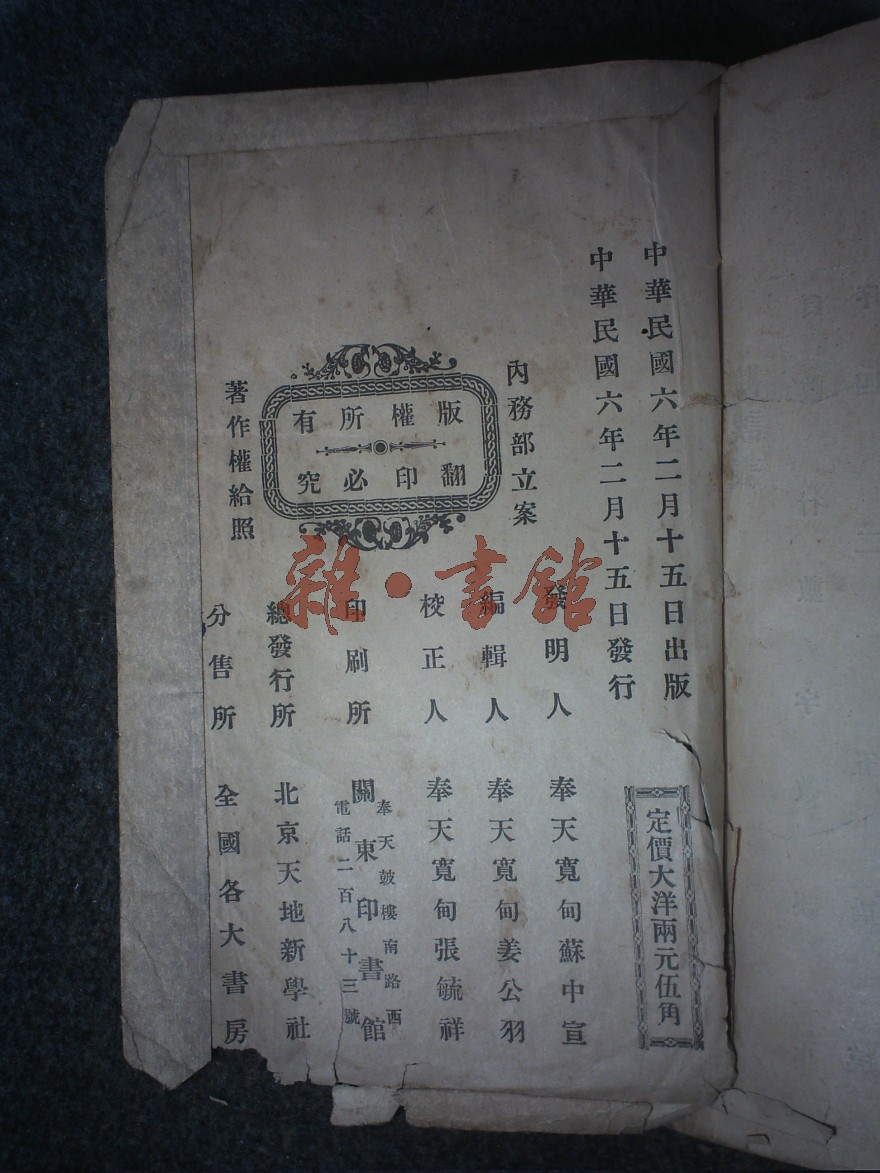 中華民國六年二月十五日出版
中華民國六年二月十五日發行
定價大洋兩元伍角
內務部立案
版權所有
翻印必究
著作權給照
發明人 奉天寬甸蘇中宣
編輯人 奉天寬甸姜公羽
校正人 奉天寬甸張毓祥
印刷所 關東印書館
奉天鼓樓南路西
電話二百八十三號
總發行所 北京天地新學社
分售所 全國各大書房
雜·書館